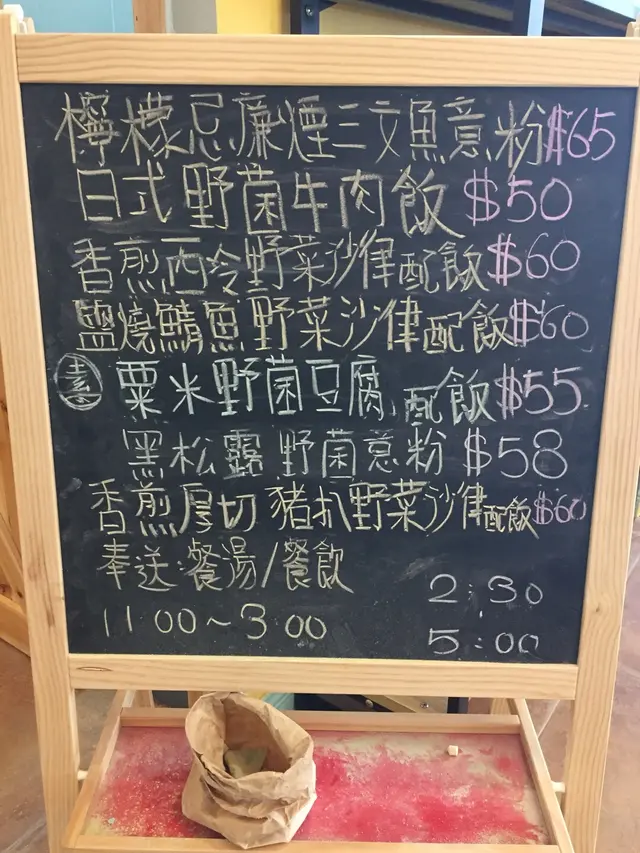 檸檬忌廉煙三文魚意粉$65
日式野菌牛肉飯 $50
香煎西冷野菜沙律配飯$60
鹽燒鯖魚野菜沙律配飯$60
素 粟米野菌豆腐 配飯$55
黑松露野菌意粉 $58
香煎厚切豬扒野菜沙律配飯$60
奉送:餐湯/餐飲
11:00~3:00
2:30
5:00